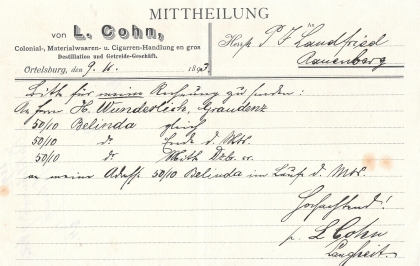 MITTHEILUNG
von L. Cohn,
Colonial-, Materialwaaren- u. Cigarren-Handlung en gros
Destillation und Getreide-Geschäft.
Herrn P J Landfried
in
Rauenberg
Ortelsburg, den 9. 11. 1893
Bitte für meine Rechnung zu senden:
An Herrn H. Wunderlich, Graudenz
50/10 Belinda gleich
50/10 do Ende d. Mts.
50/10 do Mitte Dzb. cr.
an meine Adresse 50/10 Belinda im Laufe d. Mts
Hochachtend!
p. L Cohn